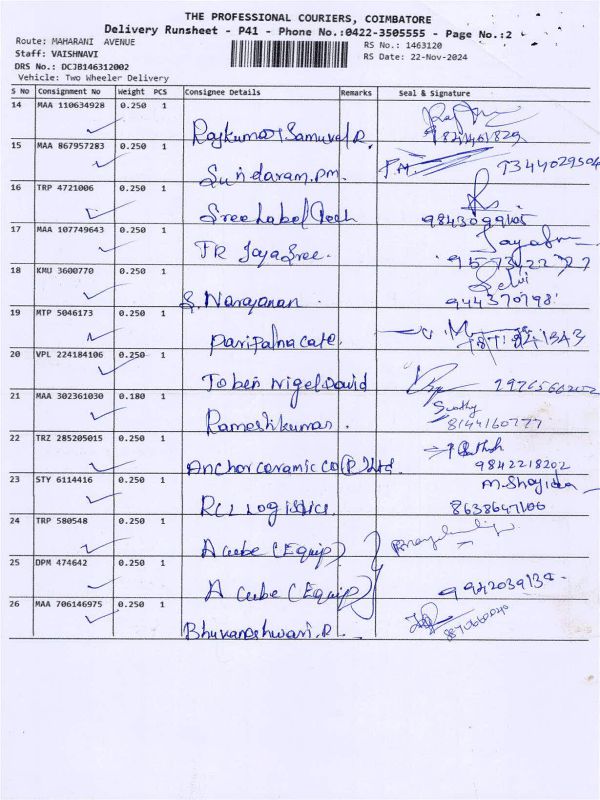 THE PROFESSIONAL COURIERS, COIMBATORE
Delivery Runsheet - P41 - Phone No.:0422-3505555 - Page No.:2
Route: MAHARANI AVENUE
RS No.: 1463120
Staff: VAISHNAVI
RS Date: 22-Nov-2024
DRS No.: DCJB146312002
Vehicle: Two Wheeler Delivery
S No Consignment No Weight PCS Consignee Details Remarks Seal & Signature
14 MAA 110634928 0.250 1
Rajkumar Samuvel R.
15 MAA 867957283 0.250 1
Sundaram.pm.
16 TRP 4721006 0.250 1
Sree Label Tech
17 MAA 107749643 0.250 1
TR Jaya Sree.
18 KMU 3600770 0.250 1
S. Narayanan Selvi
19 MTP 5046173 0.250 1
20 VPL 224184106 0.250 1
Toben Nigel David
21 MAA 302361030 0.180 1
Rameshkumar. Swathy 8144160777
22 TRZ 285205015 0.250 1
Anchor ceramic co (P) Ltd. 9842218202
23 STY 6114416 0.250 1
RCL Logistics. 8638647106
24 TRP 580548 0.250 1
A cube (Equip)
25 DPM 474642 0.250 1
A cube (Equip)
26 MAA 706146975 0.250 1
Bhuvaneshwari.R.